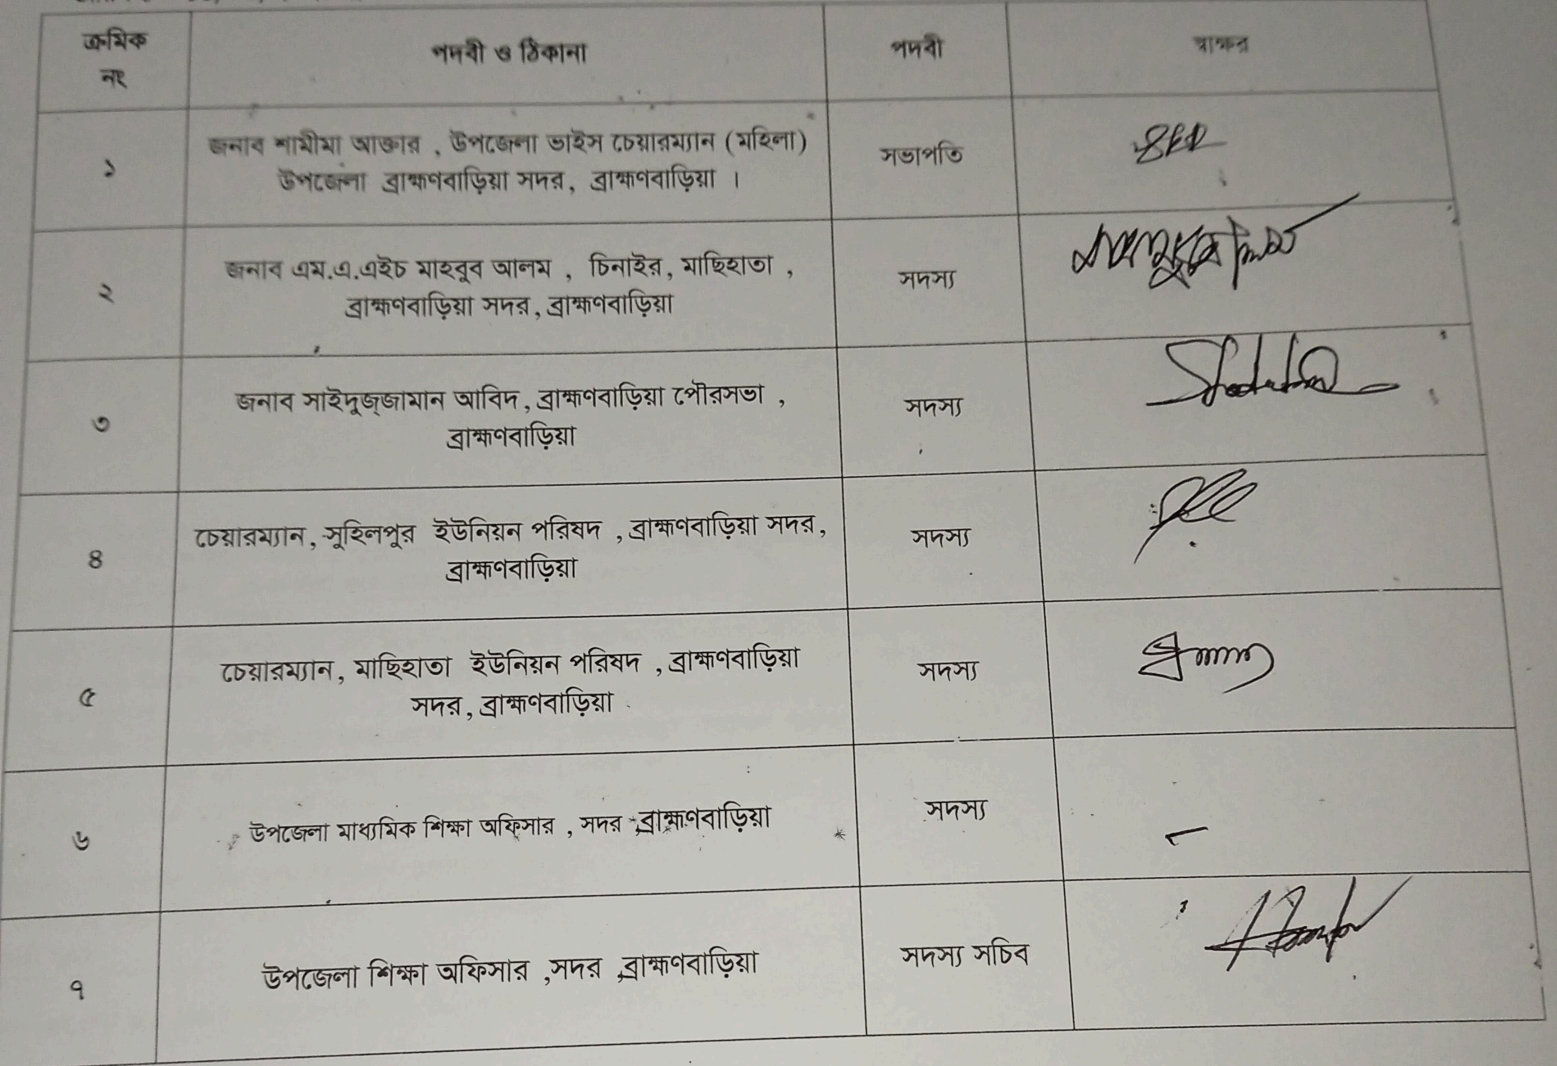 ক্রমিক নং পদবী ও ঠিকানা পদবী স্বাক্ষর
১ জনাব শামীমা আক্তার , উপজেলা ভাইস চেয়ারম্যান (মহিলা) সভাপতি
উপজেলা ব্রাহ্মণবাড়িয়া সদর, ব্রাহ্মণবাড়িয়া ।
২ জনাব এম.এ.এইচ মাহবুব আলম , চিনাইর, মাছিহাতা , সদস্য
ব্রাহ্মণবাড়িয়া সদর, ব্রাহ্মণবাড়িয়া
৩ জনাব সাইদুজ্জামান আবিদ, ব্রাহ্মণবাড়িয়া পৌরসভা , সদস্য
ব্রাহ্মণবাড়িয়া
৪ চেয়ারম্যান, সুহিলপুর ইউনিয়ন পরিষদ , ব্রাহ্মণবাড়িয়া সদর, সদস্য
ব্রাহ্মণবাড়িয়া
৫ চেয়ারম্যান, মাছিহাতা ইউনিয়ন পরিষদ , ব্রাহ্মণবাড়িয়া সদস্য
সদর, ব্রাহ্মণবাড়িয়া
৬ উপজেলা মাধ্যমিক শিক্ষা অফিসার , সদর ,ব্রাহ্মণবাড়িয়া সদস্য
৭ উপজেলা শিক্ষা অফিসার ,সদর ,ব্রাহ্মণবাড়িয়া সদস্য সচিব